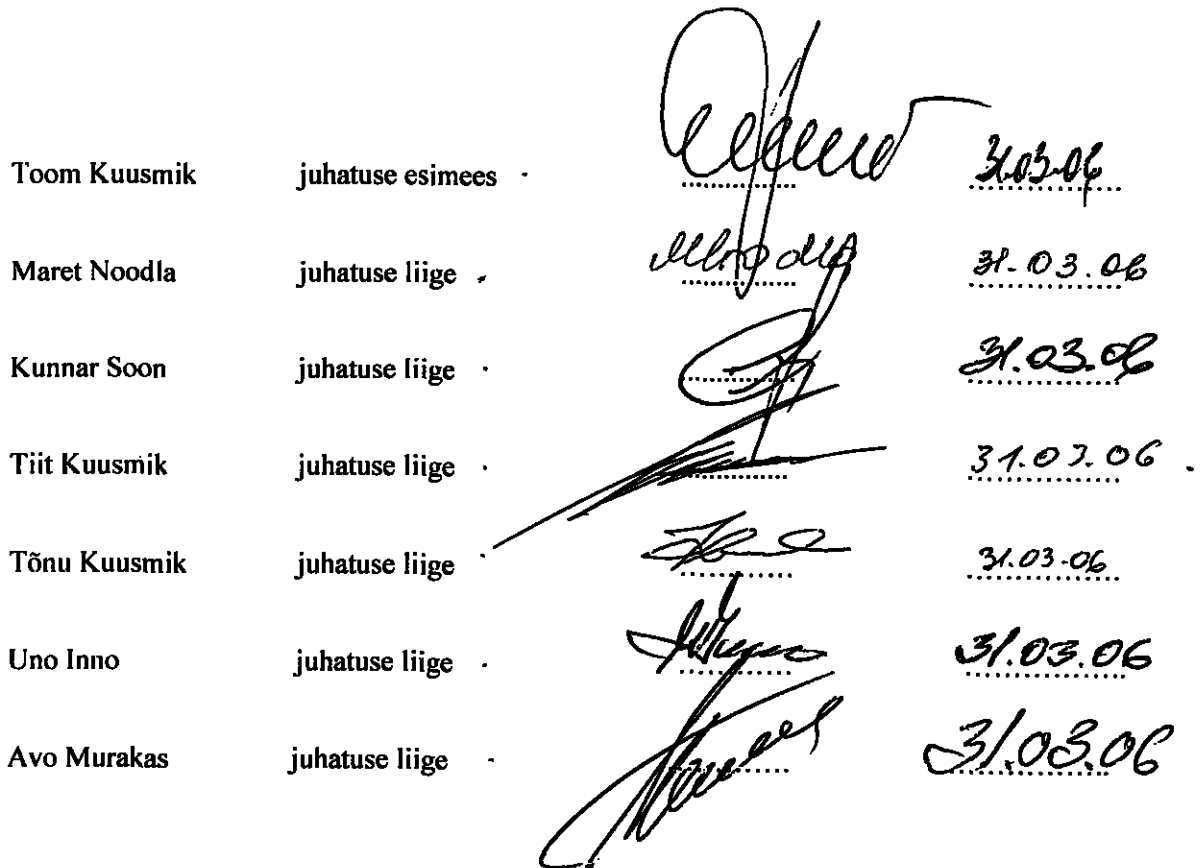 Toom Kuusmik juhatuse esimees 31.03.06
Maret Noodla juhatuse liige 31.03.06
Kunnar Soon juhatuse liige 31.03.06
Tiit Kuusmik juhatuse liige 31.03.06
Tõnu Kuusmik juhatuse liige 31.03.06
Uno Inno juhatuse liige 31.03.06
Avo Murakas juhatuse liige 31.03.06